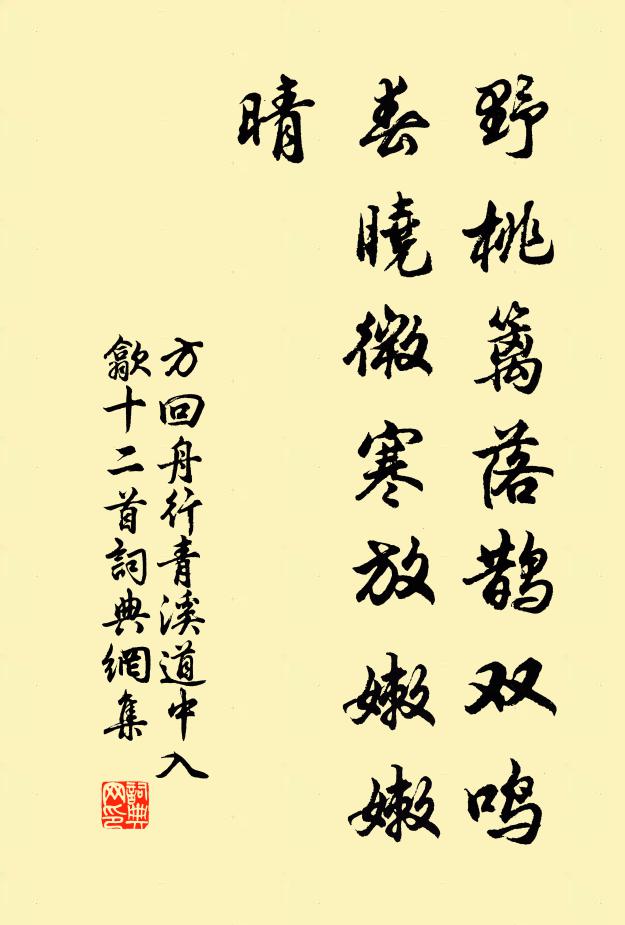 野桃篱落鹊双鸣
春曉微寒放嫩嫩
晴
方回舟行青溪道中入
歙十二首詞典網集
詞典
网印